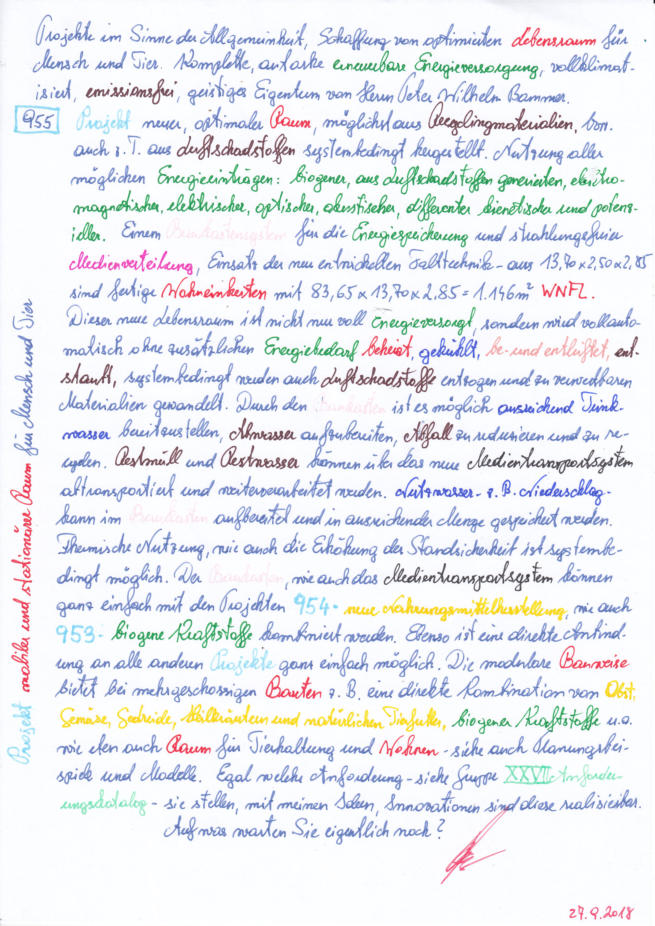 Projekte im Sinne der Allgemeinheit, Schaffung von optimierten Lebensraum für
Mensch und Tier. Komplette, autarke erneuerbare Energieversorgung, vollklimat-
isiert, emissionsfrei, geistiges Eigentum von Herrn Peter Wilhelm Bammer.
955 Projekt neuer, optimaler Raum, möglichst aus Recyclingmaterialien, bzw.
auch z.T. aus Luftschadstoffen systembedingt hergestellt. Nutzung aller
möglichen Energieeinträgen: biogener, aus Luftschadstoffen generierten, elektro-
magnetischer, elektrischer, optischer, akustischer, differenter kinetischer und potenz-
ieller. Einem Baukastensystem für die Energiespeicherung und strahlungsfreier
Medienverteilung, Einsatz der neu entwickelten Falttechnik - aus 13,70 x 2,50 x 2,85
sind fertige Wohneinheiten mit 83,65 x 13,70 x 2,85 = 1.146m² WNFL.
Dieser neue Lebensraum ist nicht nur voll Energieversorgt, sondern wird vollauto-
matisch ohne zusätzlichen Energiebedarf beheizt, gekühlt, be- und entlüftet, ent-
staubt, systembedingt werden auch Luftschadstoffe entzogen und zu verwertbaren
Materialien gewandelt. Durch den Baukasten ist es möglich ausreichend Trink-
wasser bereitzustellen, Abwasser aufzubereiten, Abfall zu reduzieren und zu re-
cyclen. Restmüll und Restwasser können über das neue Medientransportsystem
abtransportiert und weiterverarbeitet werden. Nutzwasser - z.B. Niederschlag -
kann im Baukasten aufbereitet und in ausreichender Menge gespeichert werden.
Thermische Nutzung, wie auch die Erhöhung der Standsicherheit ist systembe-
dingt möglich. Der Baukasten, wie auch das Medientransportsystem können
ganz einfach mit den Projekten 954 - neue Nahrungsmittelherstellung, wie auch
953 - biogene Kraftstoffe kombiniert werden. Ebenso ist eine direkte Anbind-
ung an alle anderen Projekte ganz einfach möglich. Die modulare Bauweise
bietet bei mehrgeschossigen Bauten z.B. eine direkte Kombination von Obst,
Gemüse, Getreide, Heilkräutern und natürlichen Tierfutter, biogener Kraftstoffe u.a.
wie eben auch Raum für Tierhaltung und Wohnen - siehe auch Planungsbei-
spiele und Modelle. Egal welche Anforderung - siehe Gruppe XXVII Anforder-
ungskatalog - sie stellen, mit meinen Ideen, Innovationen sind diese realisierbar.
Auf was warten Sie eigentlich noch?
27.9.2018
Projekt mobiler und stationärer Raum für Mensch und Tier